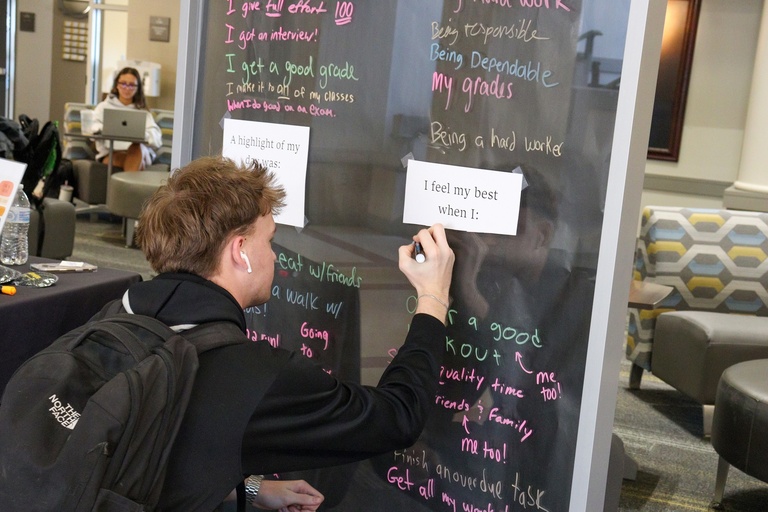 I give full effort 100
I got an interview!
I get a good grade
I make it to all of my classes
When I do good on an exam.
hard work
Being responsible
Being Dependable
My grades
Being a hard worker
A highlight of my
day was:
I feel my best
when I:
eat w/friends
a walk w/
run!
Going
to
a good
me
too!
Quality time
Friends & Family
me too!
Finish an overdue task
Get all my work
THE
NORTH
FACE